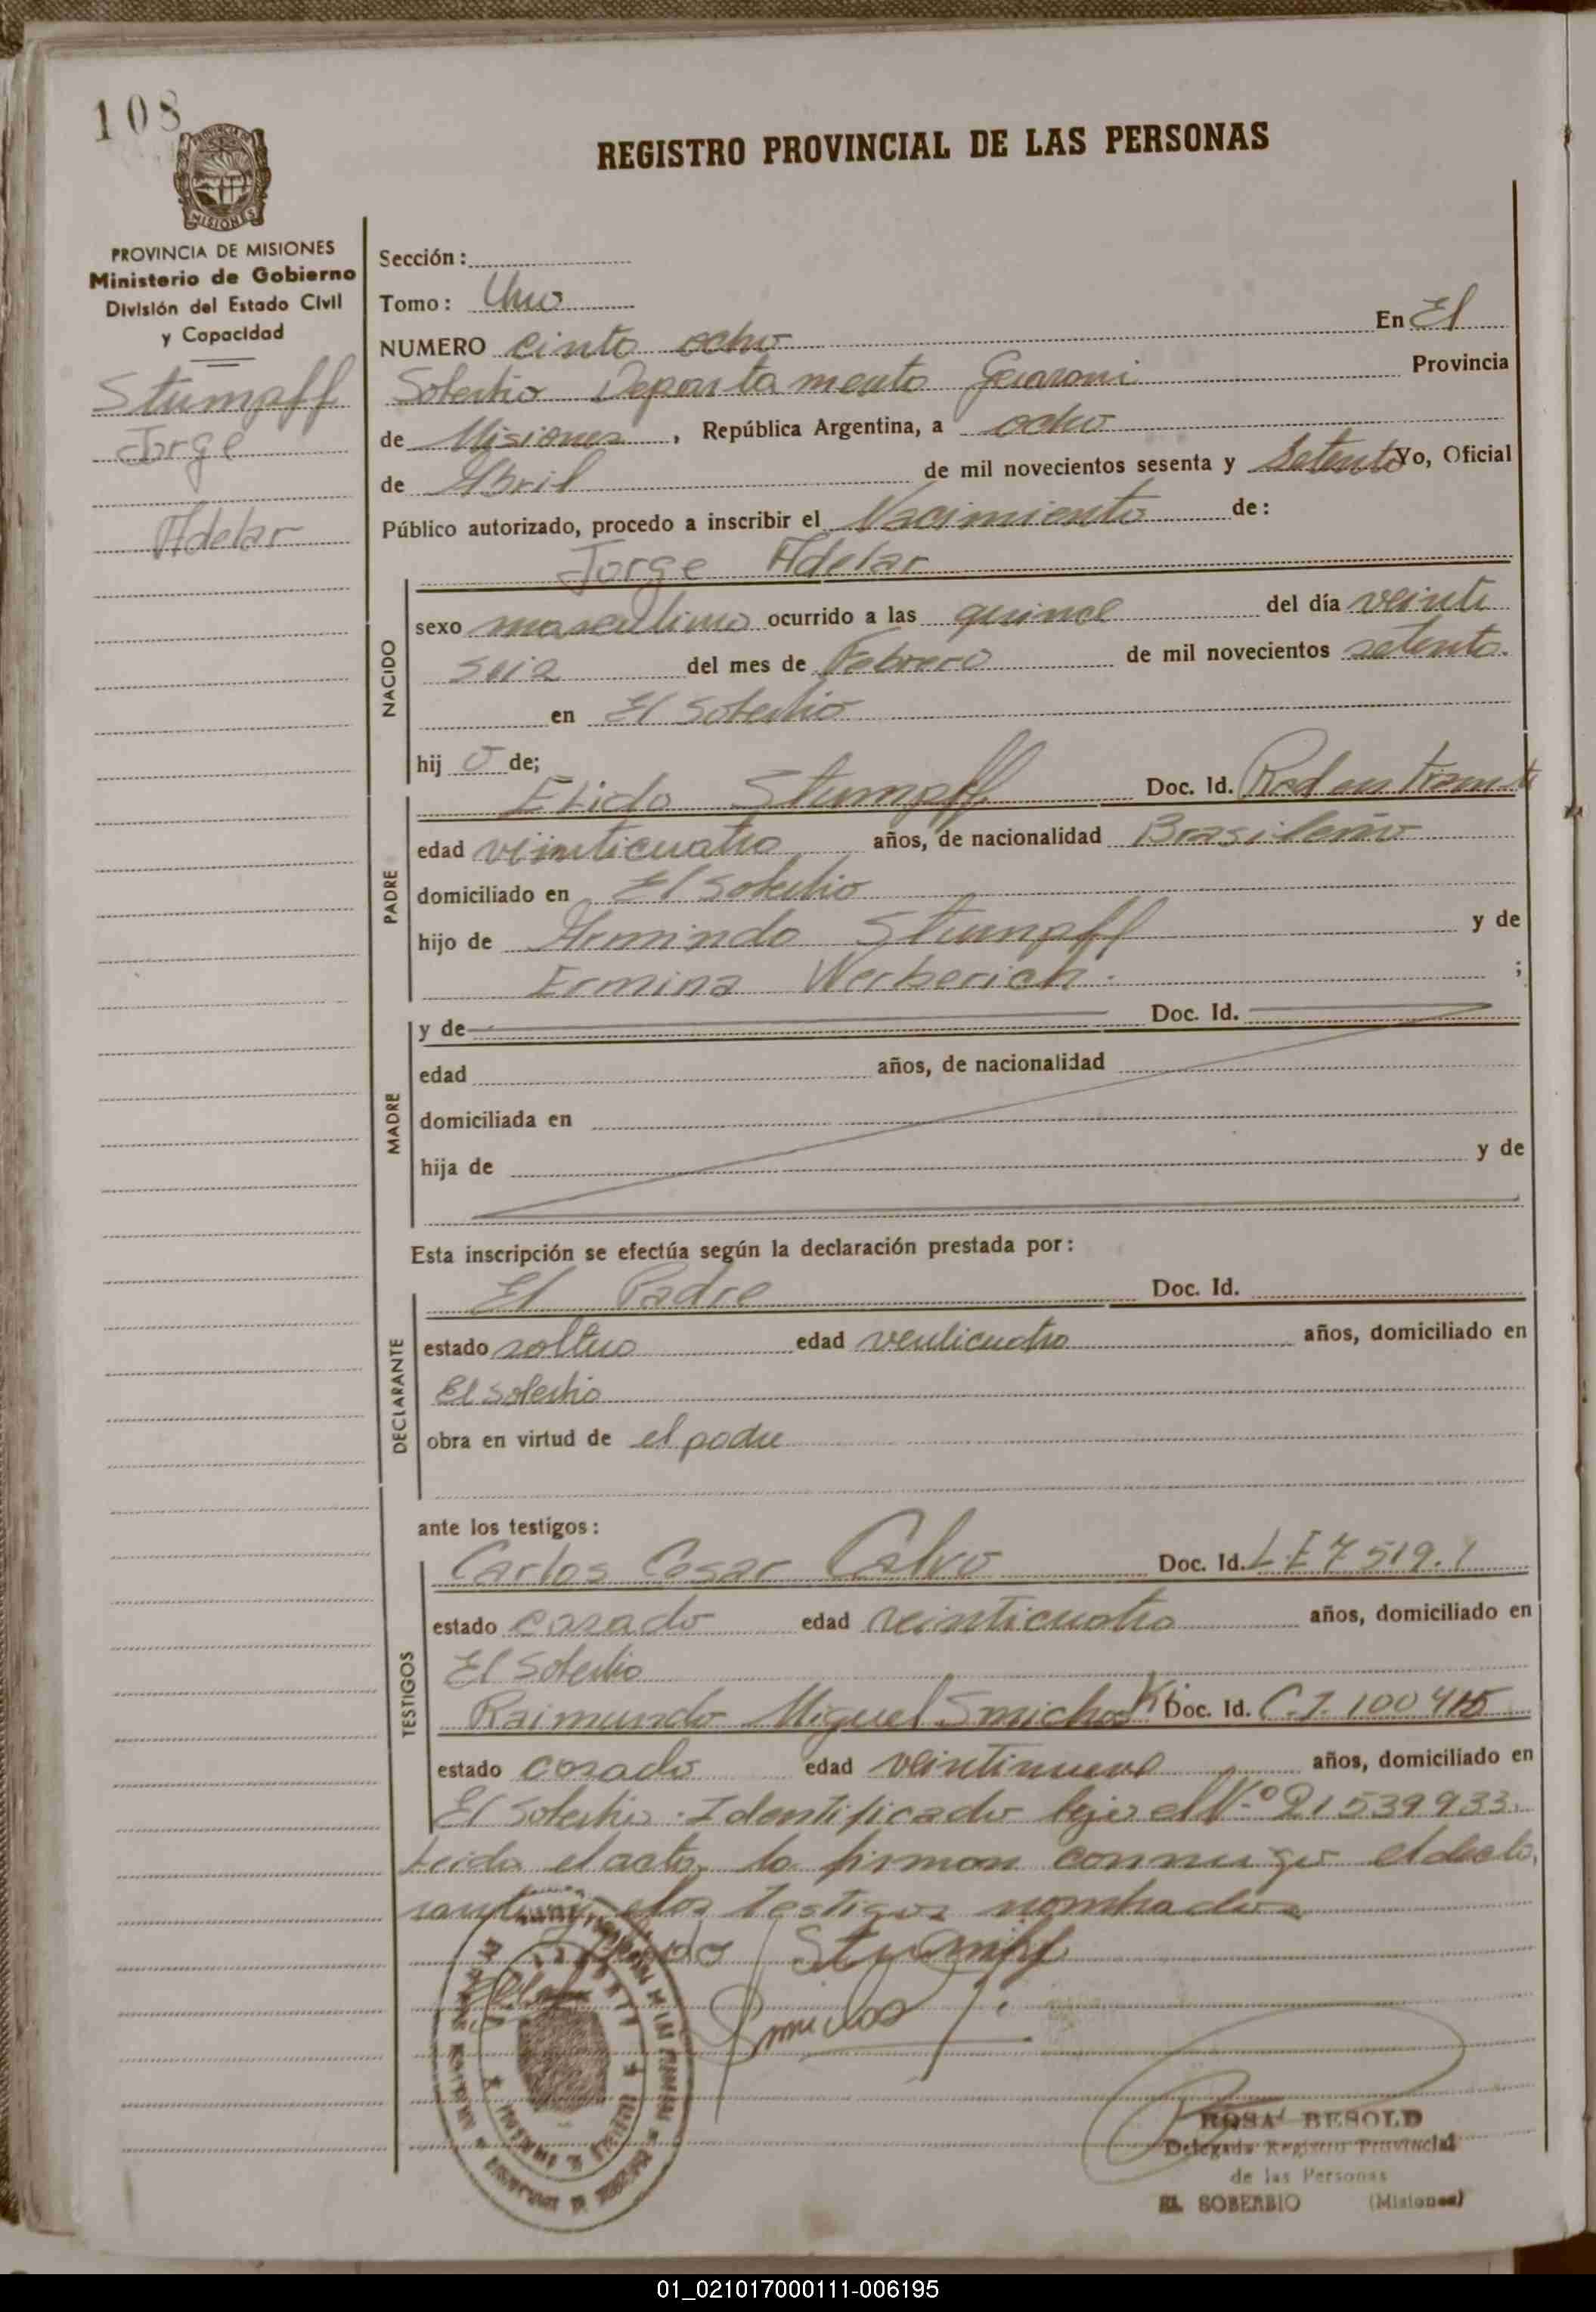 108
PROVINCIA DE
MISIONES
REGISTRO PROVINCIAL DE LAS PERSONAS
PROVINCIA DE MISIONES
Ministerio de Gobierno
División del Estado Civil
y Capacidad
Stumpff
Jorge
Adelar
Sección:
Tomo: Uno
NUMERO Cinto ocho En El
Soberbio Departamento Guarani Provincia
de Misiones, República Argentina, a ocho
de Abril de mil novecientos sesenta y Setenta Yo, Oficial
Público autorizado, procedo a inscribir el Nacimiento de:
Jorge Adelar
NACIDO
sexo masculino ocurrido a las quince del día veinti
seis del mes de Febrero de mil novecientos setenta
en El Soberbio
hij o de;
PADRE
Elido Stumpff Doc. Id. Rad en Tramite
edad veinticuatro años, de nacionalidad Brasileño
domiciliado en El Soberbio
hijo de Armindo Stumpff y de
Ermina Werberich ;
MADRE
y de Doc. Id.
edad años, de nacionalidad
domiciliada en
hija de y de
Esta inscripción se efectúa según la declaración prestada por:
DECLARANTE
El Padre Doc. Id.
estado soltero edad veinticuatro años, domiciliado en
El Soberbio
obra en virtud de el padre
ante los testigos:
TESTIGOS
Carlos Cesar Calvo Doc. Id. L.E 7 519.1
estado casado edad veinticuatro años, domiciliado en
El Soberbio
Raimundo Miguel Smichoski Doc. Id. C.I. 100
estado casado edad veintinueve años, domiciliado en
El Soberbio. Identificado bajo el Nº D1539933.
Leida el acta, la firman conmigo el decla
rante y los Testigos nombrados
Elido Stumpff
ROSA BESOLD
Delegada Registro Provincial
de las Personas
EL SOBERBIO (Misiones)
01_021017000111-006195